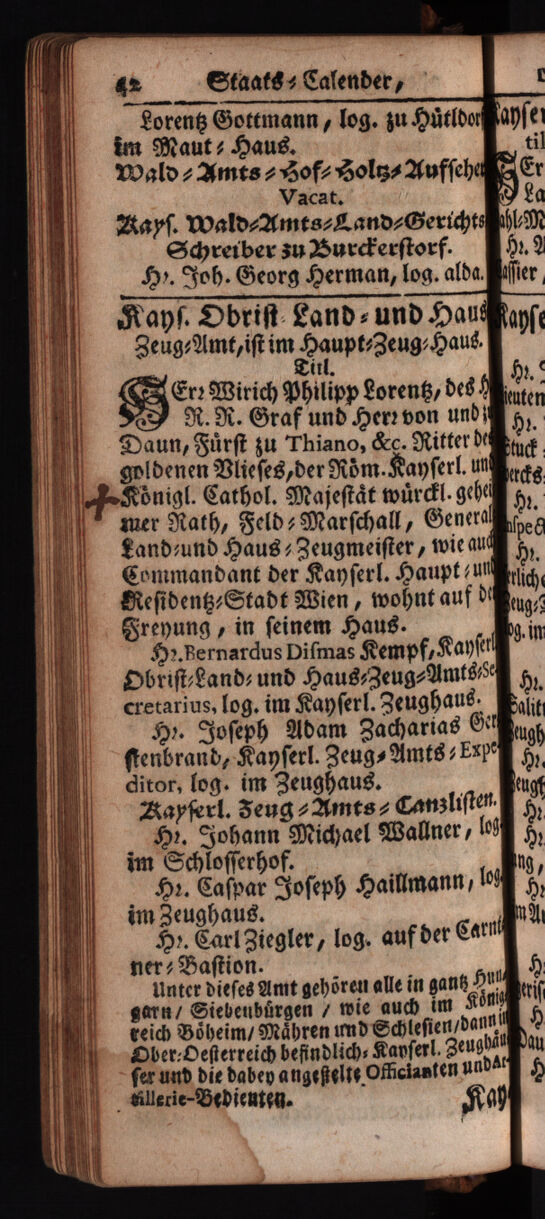 42 Staats-Calender,
Lorentz Gottmann, log. zu Hütldor
im Maut-Haus.
Wald-Amts-Hof-Holtz-Aufsehe
Vacat.
Kays. Wald-Amts-Land-Gerichts
Schreiber zu Burckerstorf.
Hr. Joh. Georg Herman, log. alda.
Kays. Obrist-Land- und Haus
Zeug-Amt, ist im Haupt-Zeug-Haus.
Titl.
HErr Wirich Philipp Lorentz, des H
R. R. Graf und Herr von und zu
Daun, Fürst zu Thiano, &c. Ritter des
goldenen Vlieses, der Röm. Kayserl. und
Königl. Cathol. Majestät würckl. gehei
mer Rath, Feld-Marschall, General
Land- und Haus-Zeugmeister, wie auch
Commandant der Kayserl. Haupt- und
Residentz-Stadt Wien, wohnt auf der
Freyung, in seinem Haus.
Hr. Bernardus Dismas Kempf, Kayserl
Obrist-Land- und Haus-Zeug-Amts-Se
cretarius, log. im Kayserl. Zeughaus.
Hr. Joseph Adam Zacharias Ger
stenbrand, Kayserl. Zeug-Amts-Expe
ditor, log. im Zeughaus.
Kayserl. Zeug-Amts-Canzlisten.
Hr. Johann Michael Wallner, log
im Schlosserhof.
Hr. Caspar Joseph Haillmann, log.
im Zeughaus.
Hr. Carl Ziegler, log. auf der Carnt
ner-Bastion.
Unter dieses Amt gehören alle in gantz Hun
garn/ Siebenbürgen / wie auch im König
reich Böheim/ Mähren und Schlesien/ dann in
Ober-Oesterreich befindlich- Kayserl. Zeughäu
ser und die dabey angestelte Officianten und Ar
tillerie-Bedienten.
Kay